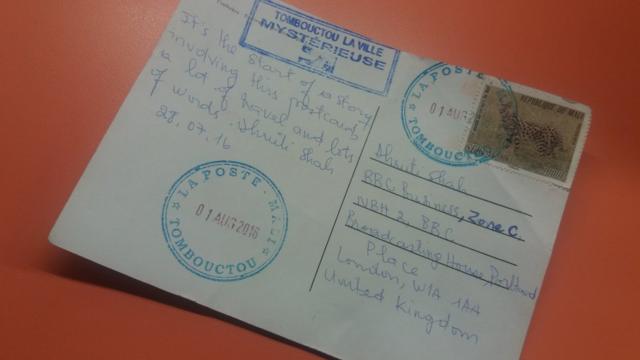 TOMBOUCTOU LA VILLE
MYSTÉRIEUSE
It's the start of a story
involving this postcard
a lot of travel and lots
of words. Dhruti Shah
28.07.16
LA POSTE
01 AUG 2016
TOMBOUCTOU
REPUBLIQUE DU MALI
LA POSTE · MALI
01 AUG 2016
TOMBOUCTOU
Dhruti Shah
BBC Business, Zone C.
NBH 2, BBC
Broadcasting House, Portland
Place
London, W1A 1AA
United Kingdom